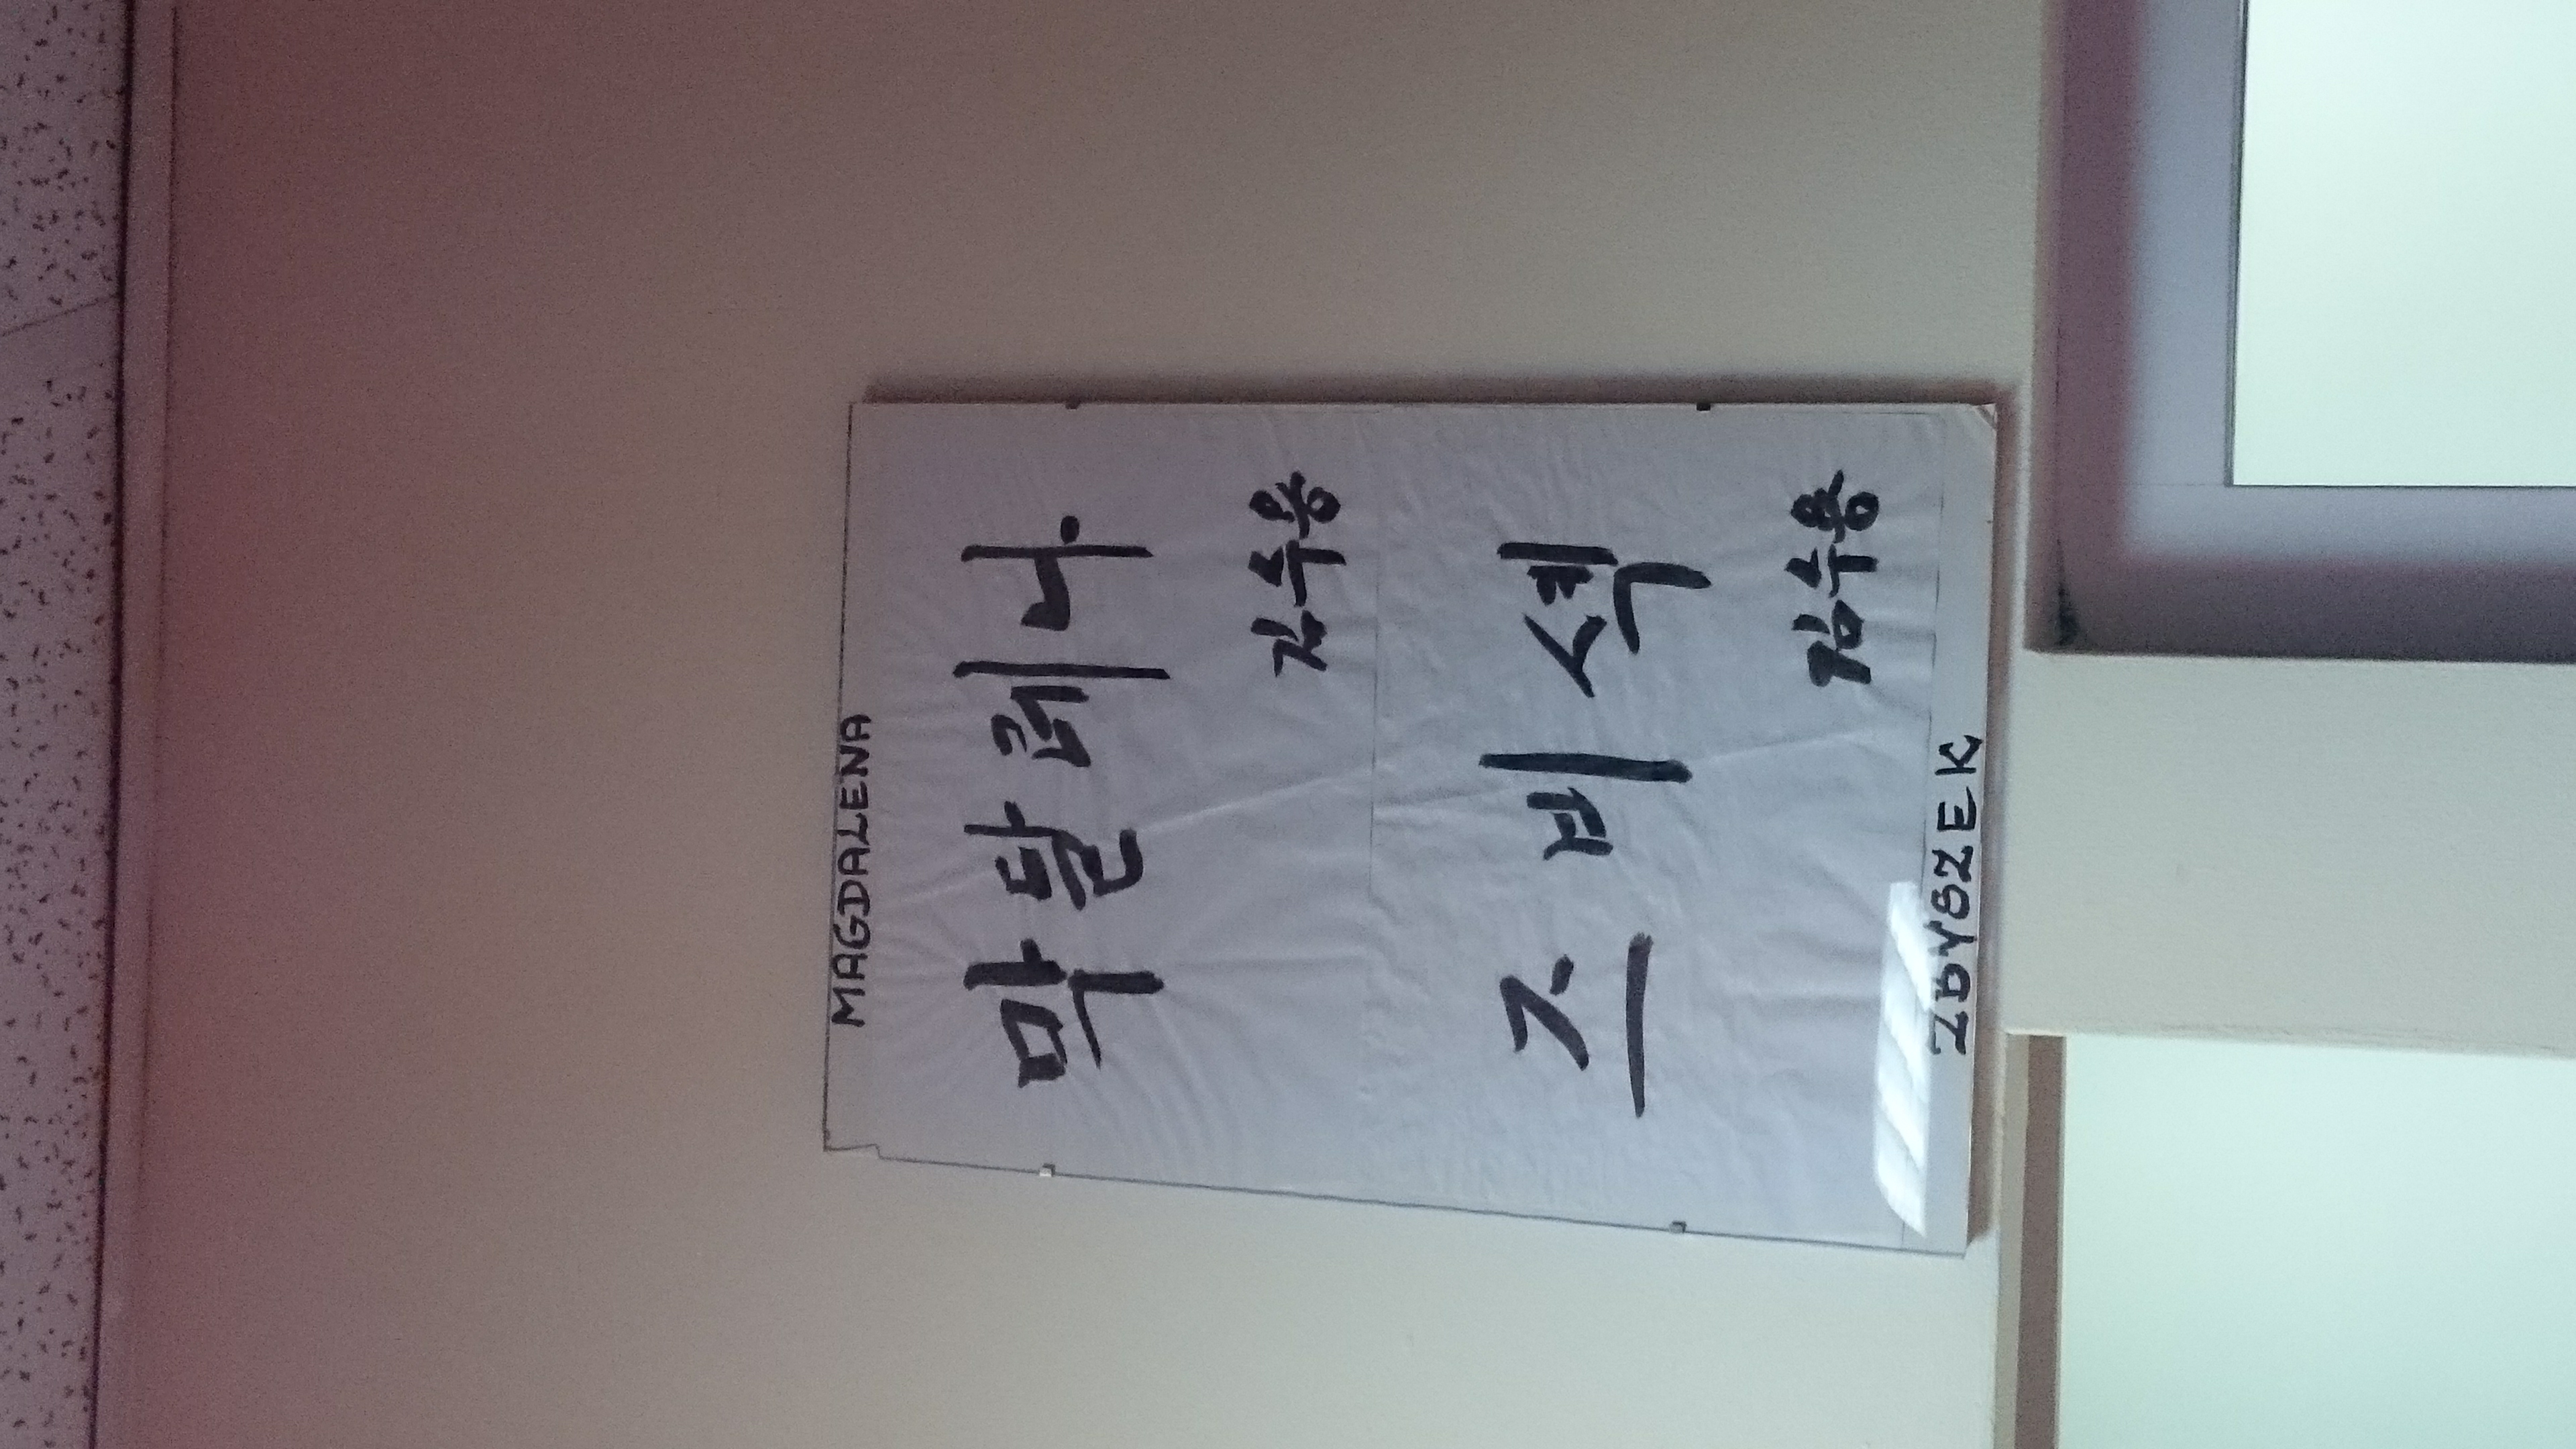 MAGDALENA
막달레나
김수용
즈비섹
김수용
ZbYSZEK